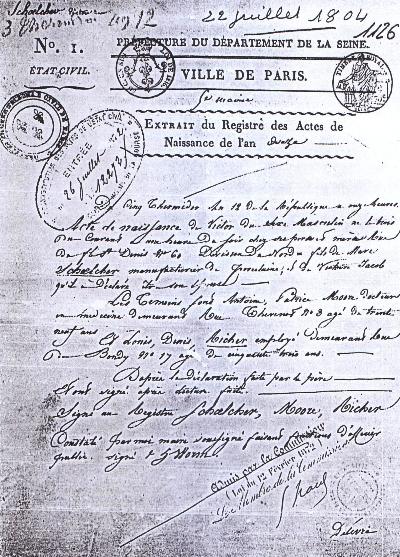 Schœlcher
22 juillet 1804
1126
N°. 1.
PRÉFECTURE DU DÉPARTEMENT DE LA SEINE.
ÉTAT CIVIL.
VILLE DE PARIS.
5e mairie
EXTRAIT du Registre des Actes de
Naissance de l'an douze
ENTRÉE
26 juillet
Cinq Thermidor an 12 de la République à onze heures.
Acte de naissance de Victor du sexe Masculin né le trois
du Courant à une heure du soir chez ses père et mère rue
du fg St Denis N° 60 Division du Nord fils de Marc
Schœlcher manufacturier de Porcelaine, & de Victoire Jacob
qu'il a déclaré être son épouse
Les Témoins sont Antoine, Patrice Moore docteur
en médecine demeurant Rue Thévenot N° 3 agé de trente
neuf ans
Et Louis, Denis, Richer employé demeurant Rue
de Bondy N° 17 agé de cinquante trois ans.
D'après la déclaration faite par le père
Et ont signé après lecture faite.
Signé au Registre Schœlcher, Moore, Richer
Constaté par moi maire soussigné faisant fonctions d'officier
public. signé
Admis par la Commission
(Loi du 12 Février 1872)
Le Membre de la Commission
Délivré